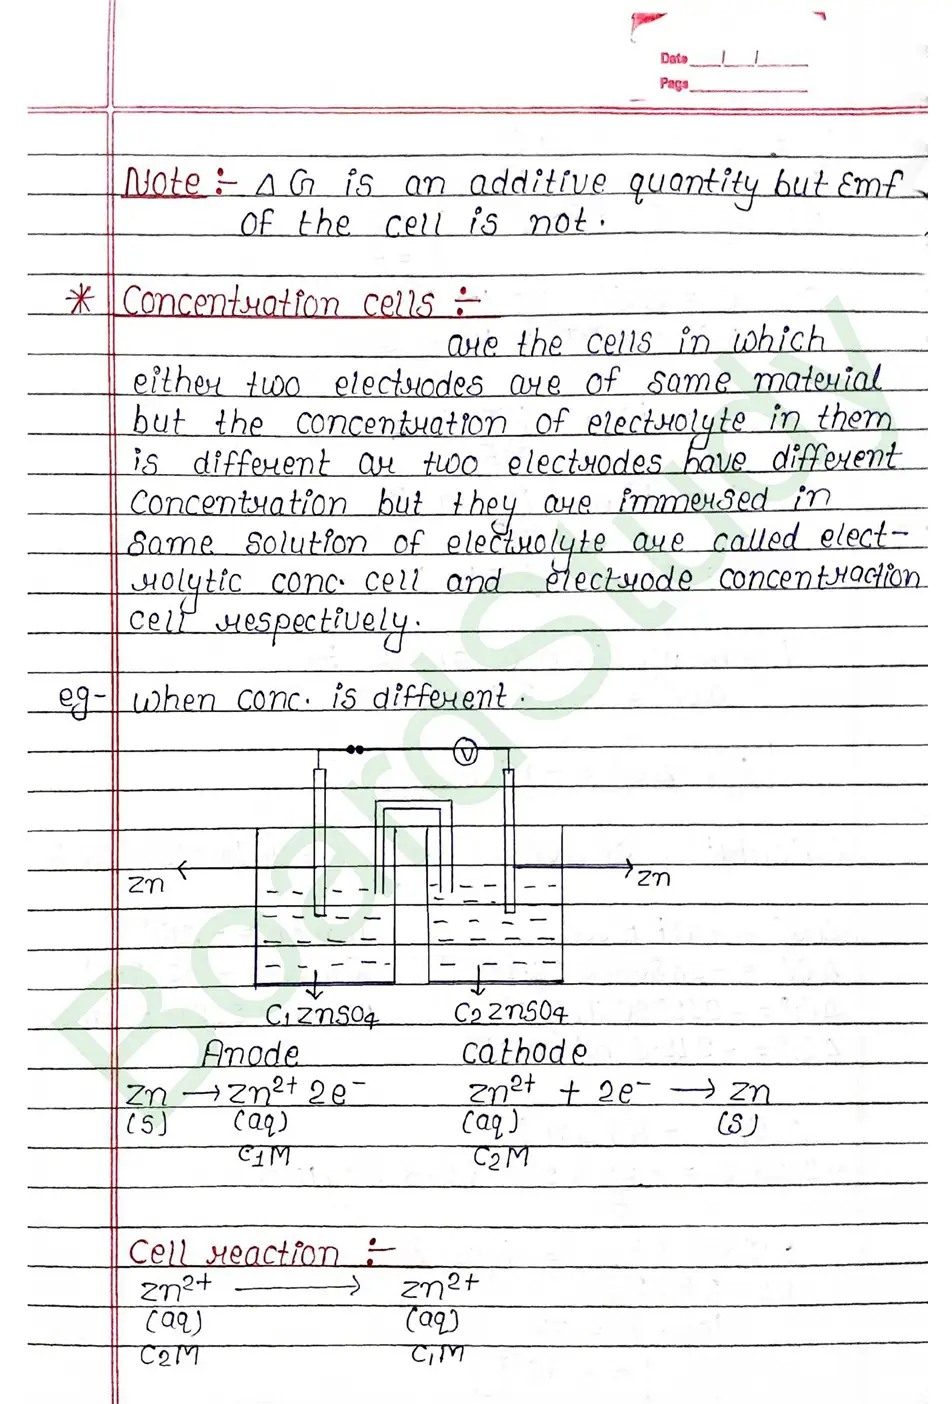 Date __/__/__
Page
Note :- ΔG is an additive quantity but Emf
of the cell is not.
* Concentration cells :-
are the cells in which
either two electrodes are of same material
but the concentration of electrolyte in them
is different or two electrodes have different
concentration but they are immersed in
same solution of electrolyte are called elect-
rolytic conc. cell and electrode concentraction
cell respectively.
eg- when conc. is different.
V
Zn Zn
C1ZnSO4 C2ZnSO4
Anode Cathode
Zn → Zn2+ 2e- Zn2+ + 2e- → Zn
(s) (aq) (aq) (s)
C1M C2M
Cell reaction :-
Zn2+ → Zn2+
(aq) (aq)
C2M C1M
BoardStudy